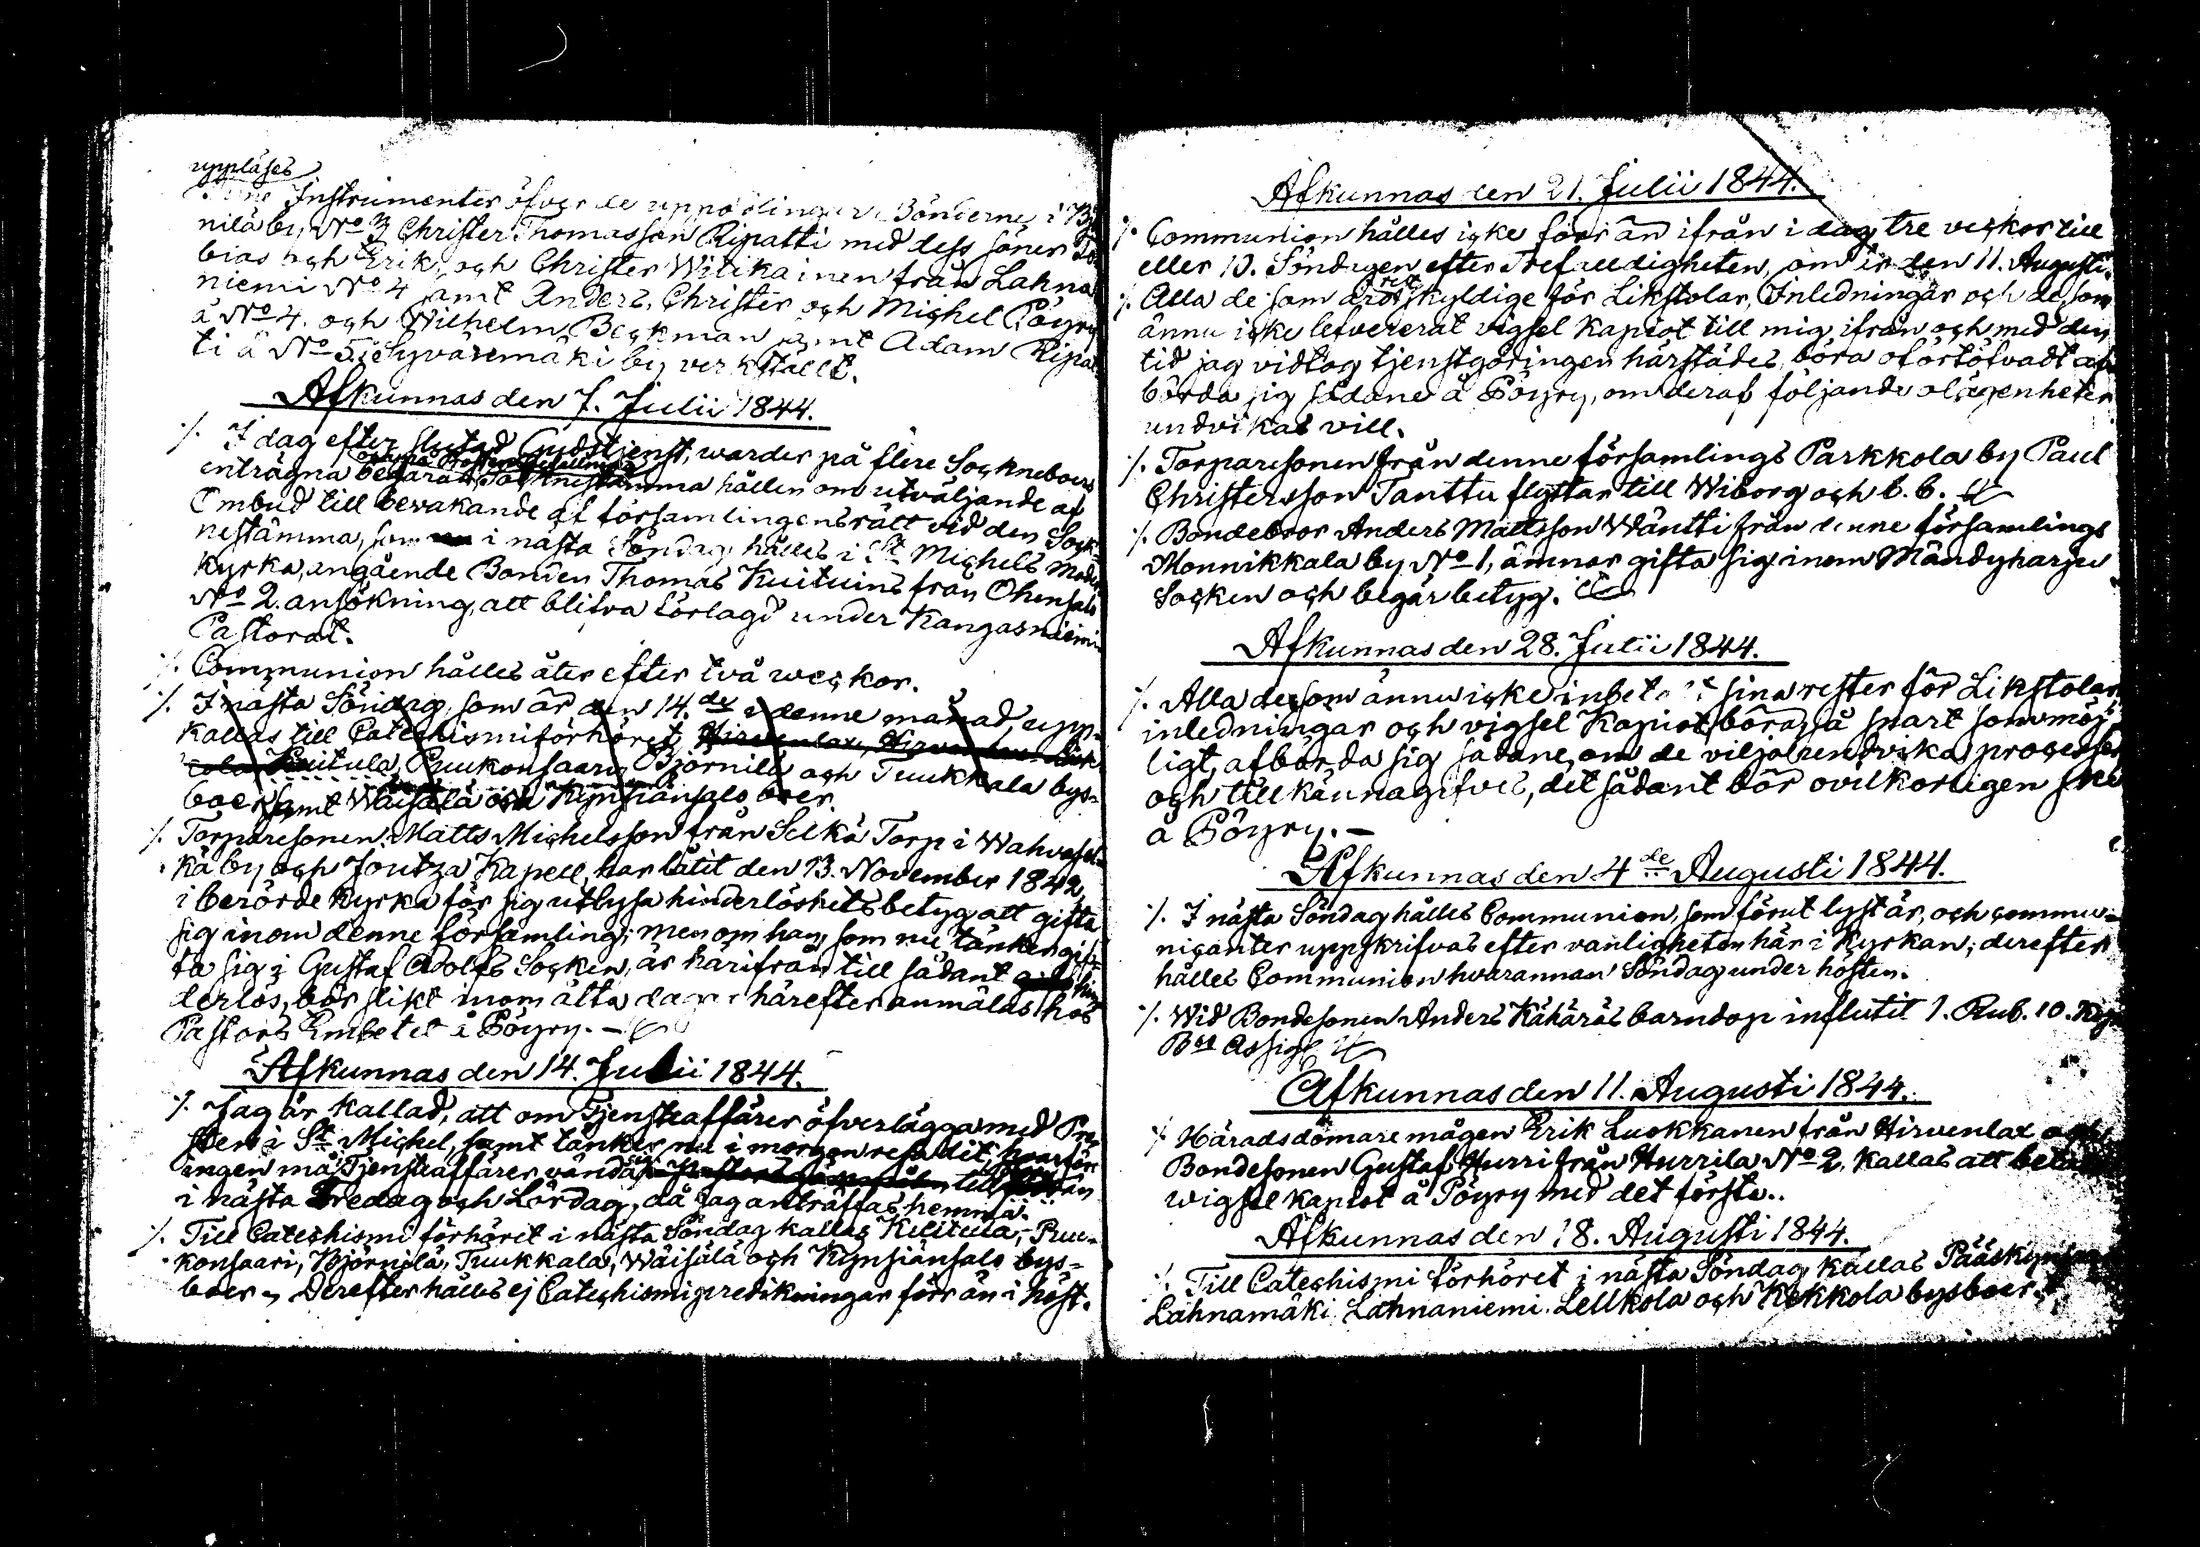 uppläses
Syne Instrumenter öfver de uppodlingar Bönderne i Björ
nilä by, No 3 Christer Thomasson Ripatti med dess söner To
bias och Erik, och Christer Witikainen från Lahna
niemi No 4 samt Anders, Christer och Michel Pöyry
å No 4. och Wilhelm Beckman samt Adam Ripat
ti å No 5 i Syväremäki by verkställt.
Afkunnas den 7. Julii 1844.
⁒ I dag efter slutad Gudstjenst, warder på flere Sockneboers
enträgna begäran Socknestämma hållen om utväljande af
Ombud till bevakande af församlingens rätt vid den Sock-
nestämma, som i nästa Söndag hålles i St Michels Moder
kyrka, angående Bonden Thomas Kuituins från Ohensalo
No 2. ansökning, att blifva förlagd under Kangasniemi
Pastorat.
⁒ Communion hålles åter efter två weckor.
⁒ I nästa Söndag, som är den 14.de i denne månad, upp-
kallas till Catechismiförhöret, Hirvenlax,
Kuitula, Puukonsaari, Björnilä och Tuukkala bys-
boer samt Wäisälä och Kynsiänsalo boer.
⁒ Torparesonen Matts Michelsson från Selkä Torp i Wahvasel-
kä by och Joutza Kapell, har låtit den 13. November 1842,
i berörde kyrka för sig utlysa hinderlöshetsbetyg att gifta
sig inom denne församling; men om han, som nu tänker gif-
ta sig i Gustaf Adolfs Socken, är härifrån till sådant hin
derlös, bör slikt inom åtta dagar härefter anmälas hos
Pastors Embetet å Pöyry. —
Afkunnas den 14. Julii 1844.
⁒ Jag är kallad, att om Tjensteaffärer öfverlägga med Pro-
sten i St Michel, samt tänker nu i morgon resa dit, hvarföre
ingen må i Tjensteaffärer vända sig till förrän
i nästa Fredag och Lördag, då jag anträffas hemma.
⁒ Till Catechismi förhöret i nästa Söndag kallas Kuitula, Puu-
konsaari, Björnilä, Tuukkala, Wäisälä och Kynsiänsalo bys-
boer. Derefter hålles ej Catechismi predikningar förr än i höst.
Afkunnas den 21. Julii 1844.
⁒ Communion hålles icke förr än ifrån i dag tre veckor till
eller 10. Söndagen efter Trefalldigheten, som är den 11. Augusti.
⁒ Alla de som äro skyldige för Likstolar, Inledningar och de som
ännu icke lefvererat vigsel kapiot till mig ifrån och med den
tid jag vidtog tjenstgöringen härstädes, böra oförtöfvadt af
börda sig sådane å Pöyry, om deraf följande olägenheter
undvikas vill.
⁒ Torparesonen från denne församlings Parkkola by Paul
Christersson Tanttu flyttar till Wiborg och b. b.
⁒ Bondebror Anders Mattsson Wäntti från denne församlings
Monnikkala by No 1, ämnar gifta sig inom Mändyharju
Socken och begär betyg.
Afkunnas den 28. Julii 1844.
⁒ Alla de som ännu icke inbetalt sina rester för Likstolar
inledningar och vigsel Kapiot, böra så snart som möj-
ligt, afbörda sig sådane, om de vilja undvika processer
och tillkännagifves, det sådant bör ovilkorligen ske
å Pöyry. —
Afkunnas den 4de Augusti 1844.
⁒ I nästa Söndag hålles Communion, som förut lyst är, och commu-
nicanter uppskrifvas efter vanligheten här i Kyrkan; derefter
hålles Communion hvarannan Söndag under hösten.
⁒ Wid Bondesonen Anders Kähäräs barndop influtit 1. Rub. 10. Kop
Bco Assign.
Afkunnas den 11. Augusti 1844.
⁒ Häradsdömare mågen Erik Luokkanen från Hirvenlax och
Bondesonen Gustaf Hurri från Hurrila No 2. kallas att betala
wigsel kapiot å Pöyry med det första.
Afkunnas den 18. Augusti 1844.
⁒ Till Catechismi förhöret i nästa Söndag kallas
Lahnamäki, Lahnaniemi, Lellkola och Kekkola bysboer.